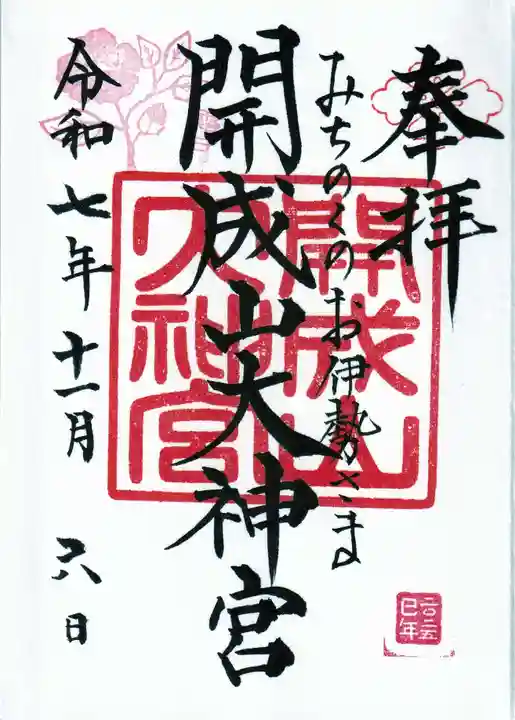 奉拝
みちのくのお伊勢さま
開成山大神宮
令和七年十一月 六日
開成山
大神宮
二〇二五
巳年